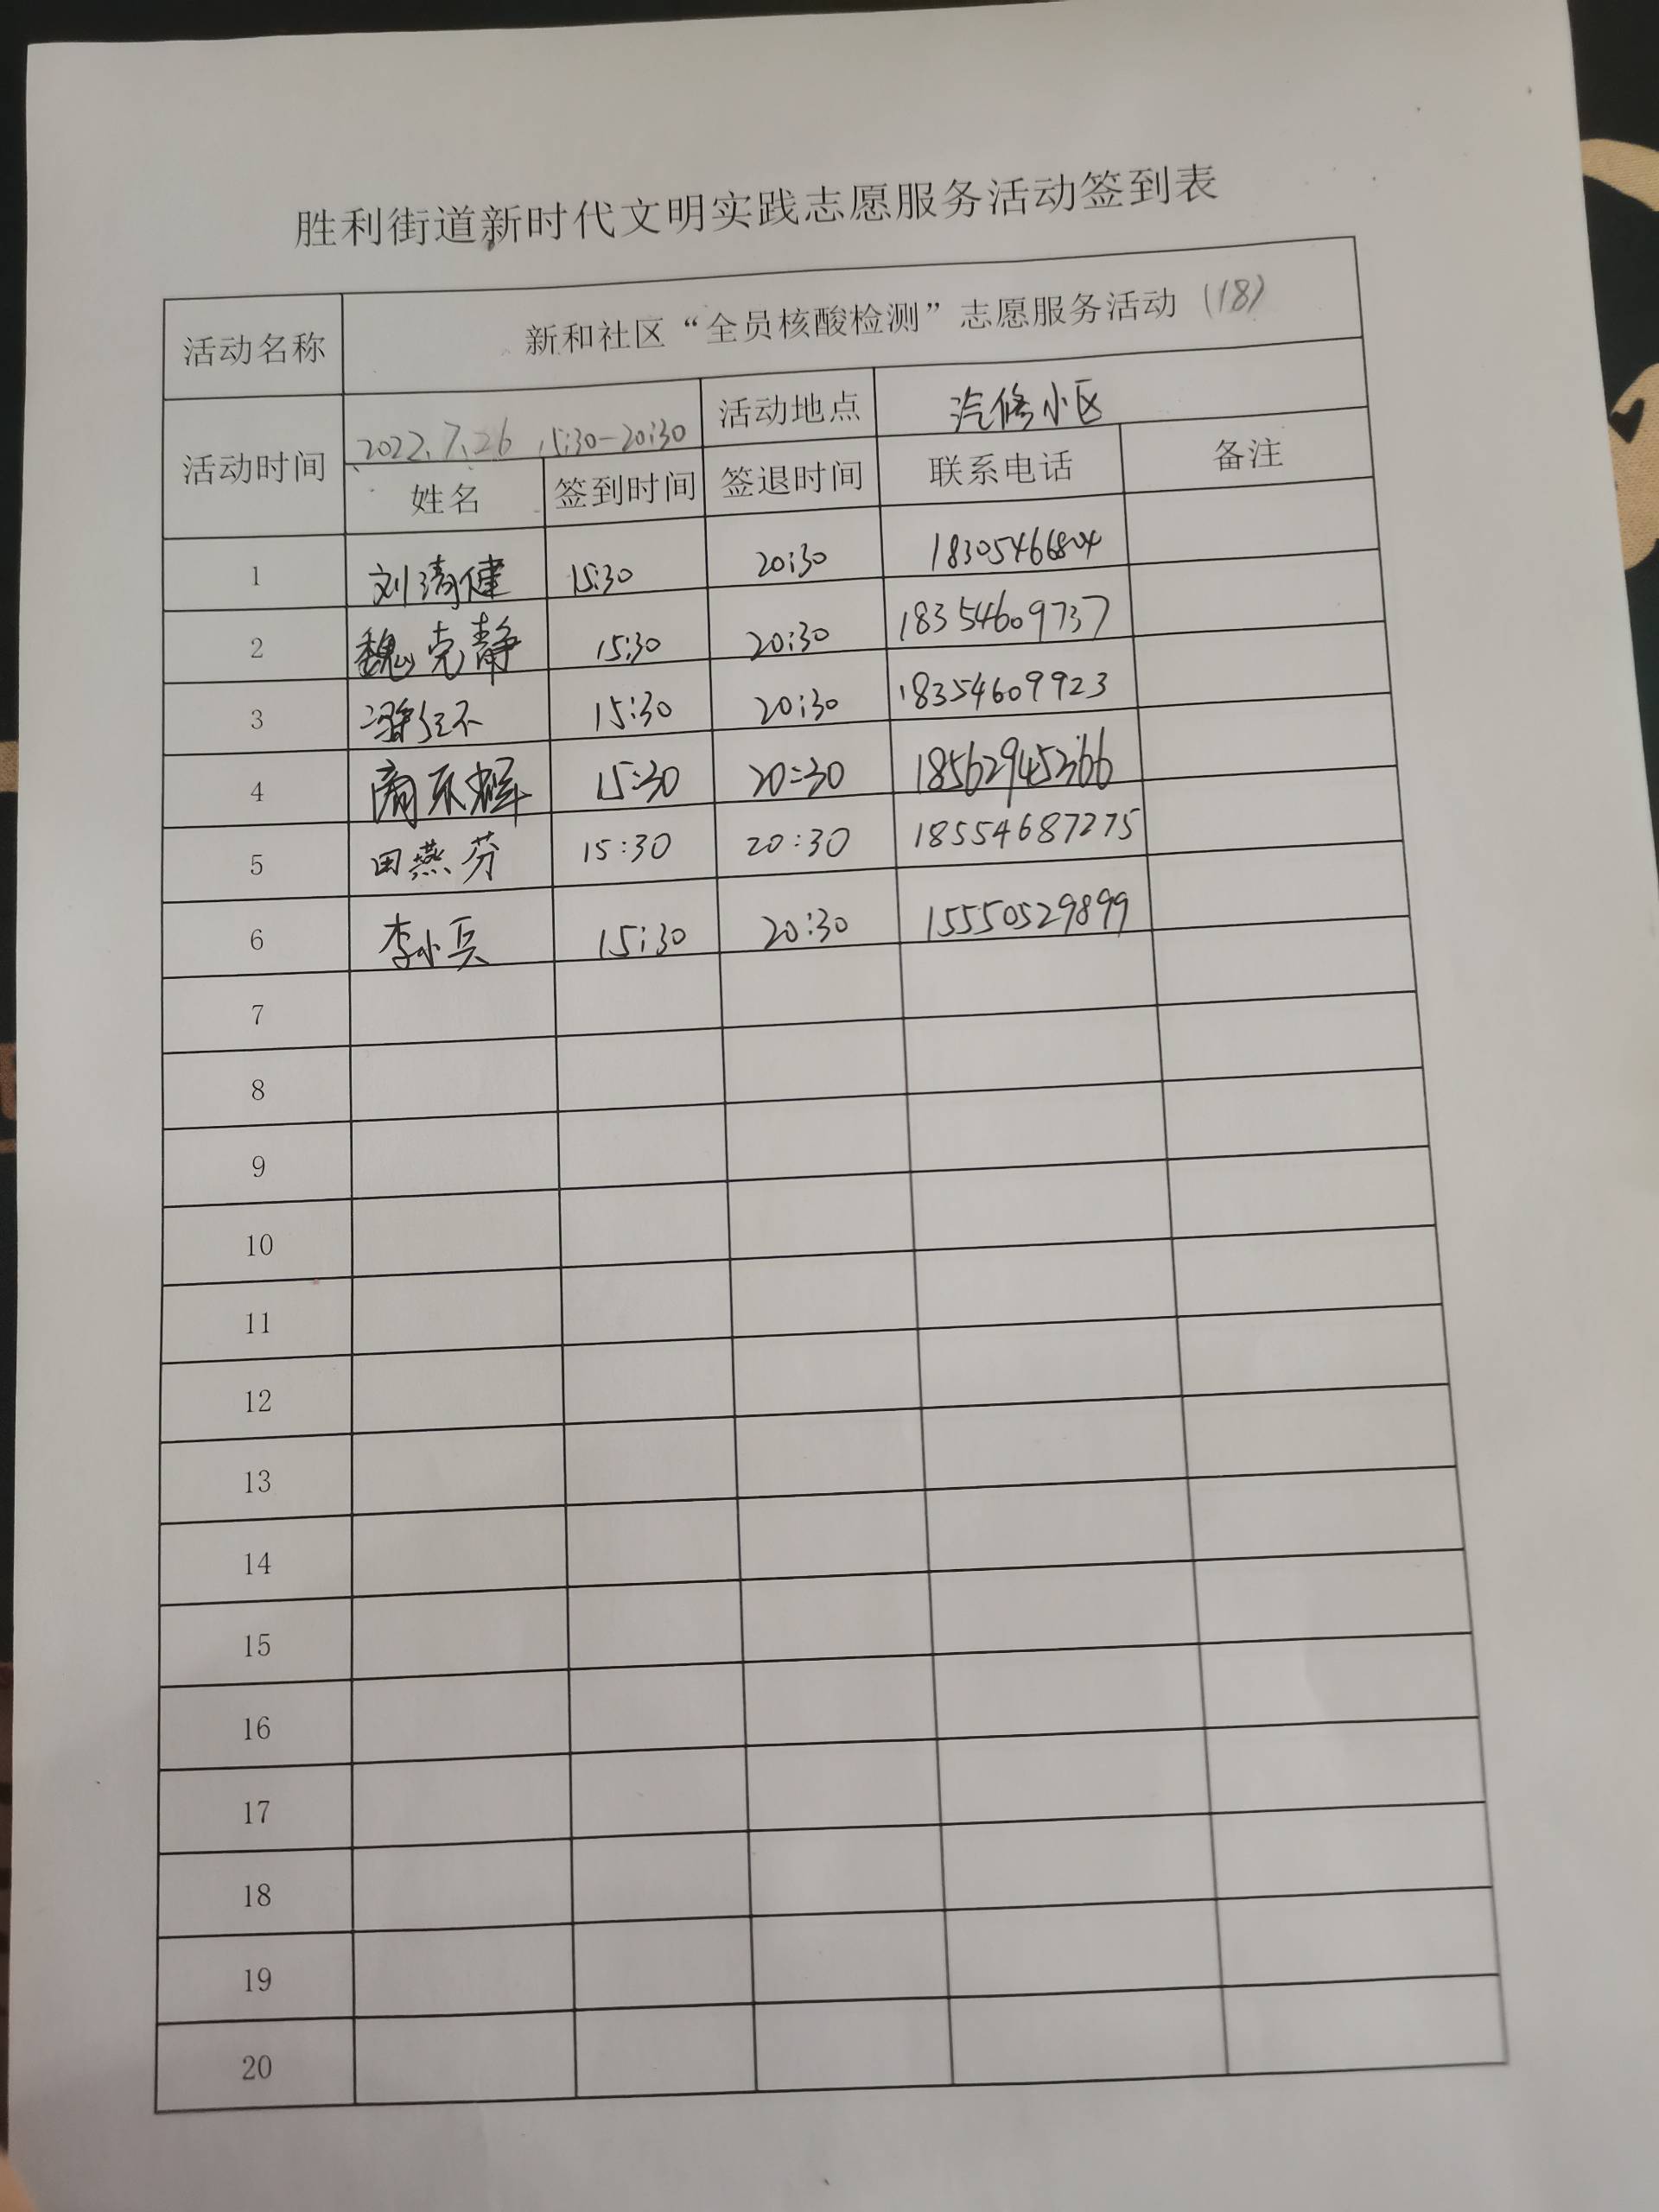 胜利街道新时代文明实践志愿服务活动签到表
活动名称 新和社区“全员核酸检测”志愿服务活动（18）
活动时间 2022.7.26 15:30-20:30 活动地点 汽修小区
姓名 签到时间 签退时间 联系电话 备注
1 刘清健 15:30 20:30 18305466804
2 魏克静 15:30 20:30 18354609737
3 15:30 20:30 18354609923
4 15:30 20:30 18562945366
5 田燕芬 15:30 20:30 18554687275
6 李小兵 15:30 20:30 15550529899
7
8
9
10
11
12
13
14
15
16
17
18
19
20